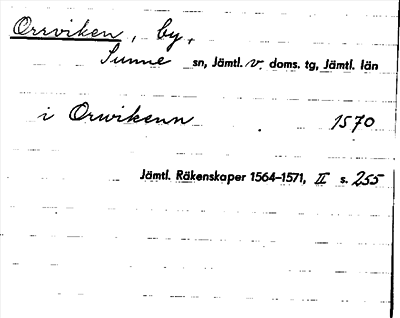 Orrviken, by,
Sunne sn, Jämtl. v. doms. tg, Jämtl. län
i Orwikenn 1570
Jämtl. Räkenskaper 1564–1571, II s. 255